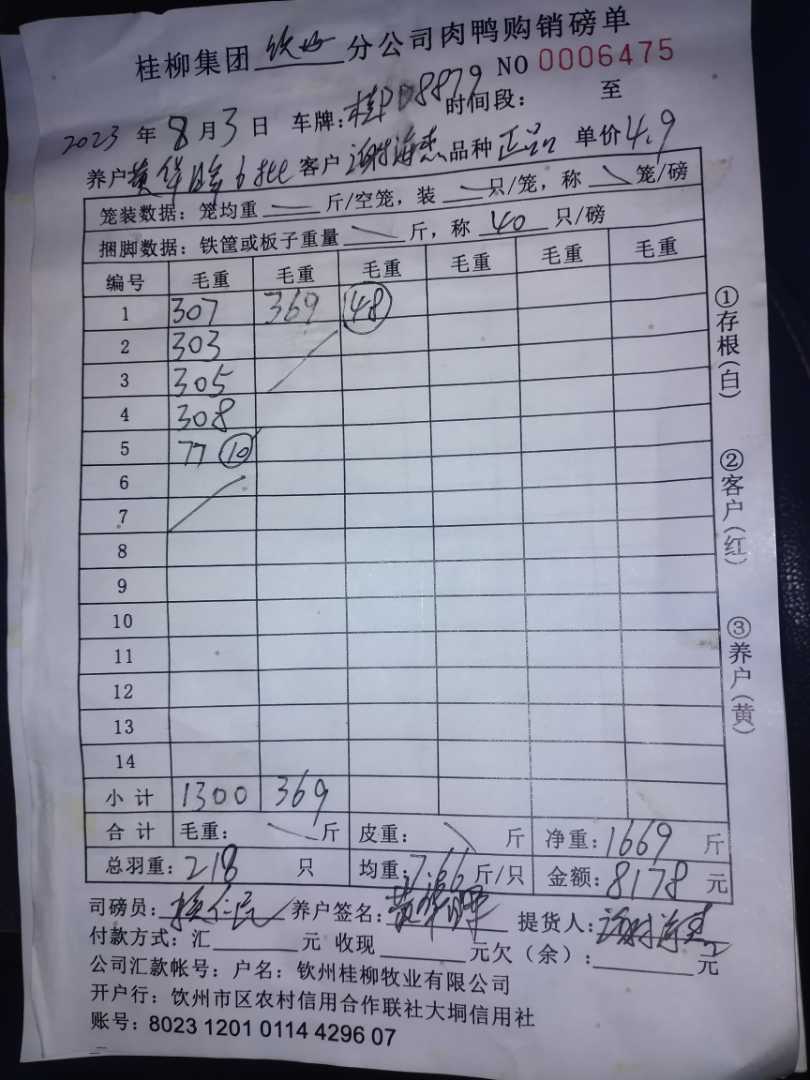 桂柳集团 钦州 分公司肉鸭购销磅单
NO 0006475
2023 年 8 月 3 日 车牌: 桂P08879 时间段: 至
养户 黄华 6批 客户 谢海杰 品种 正品 单价 4.9
笼装数据: 笼均重 斤/空笼, 装 只/笼, 称 笼/磅
捆脚数据: 铁筐或板子重量 斤, 称 40 只/磅
编号 毛重 毛重 毛重 毛重 毛重 毛重
1 307 369 48
2 303
3 305
4 308
5 77 10
6
7
8
9
10
11
12
13
14
小计 1300 369
合计 毛重: 斤 皮重: 斤 净重: 1669 斤
总羽重: 218 只 均重: 7.66 斤/只 金额: 8178 元
司磅员: 养户签名: 黄华 提货人: 谢海杰
付款方式: 汇 元 收现 元欠(余): 元
公司汇款帐号: 户名: 钦州桂柳牧业有限公司
开户行: 饮州市区农村信用合作联社大垌信用社
账号: 8023 1201 0114 4296 07
①存根(白)
②客户(红)
③养户(黄)